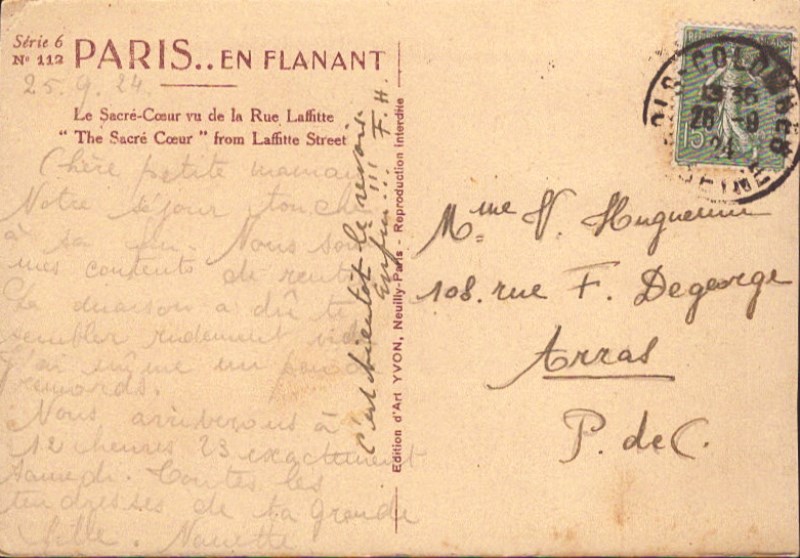 Série 6
Nº 112
PARIS.. EN FLANANT
25.9.24.
Le Sacré-Cœur vu de la Rue Laffitte
“ The Sacré Cœur ” from Laffitte Street
Chère petite maman
Notre séjour touche
à sa fin. Nous som
mes contents de rentrer
La maison a dû te
sembler rudement vide
J'ai même un
remords.
Nous arriverons à
12 heures 23 exactement
samedi. Toutes les
tendresses de ta grande
fille. Nanette
c'est bientôt le revoir
Enfin!!! F.H.
Edition d'Art YVON, Neuilly-Paris - Reproduction Interdite
BOIS-COLOMBES
13 35
26-9
24
SEINE
15
Mme V. Huguenin
108. rue F. Degeorge
Arras
P. de C.